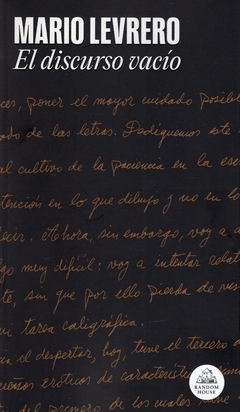 MARIO LEVRERO
El discurso vacío
ces, poner el mayor cuidado posibl
ado de las letras. Dediquemos este
al cultivo de la paciencia en la esc
tención en lo que dibujo y no en lo
decir. Ahora, sin embargo, voy a a
lgo muy difícil: voy a intentar relat
te, sin que por ello pierda de vis
mi tarea caligráfica.
al despertar, hoy, tuve el tercero
ueños eróticos de característic
el primero de los cuales
RANDOM
HOUSE